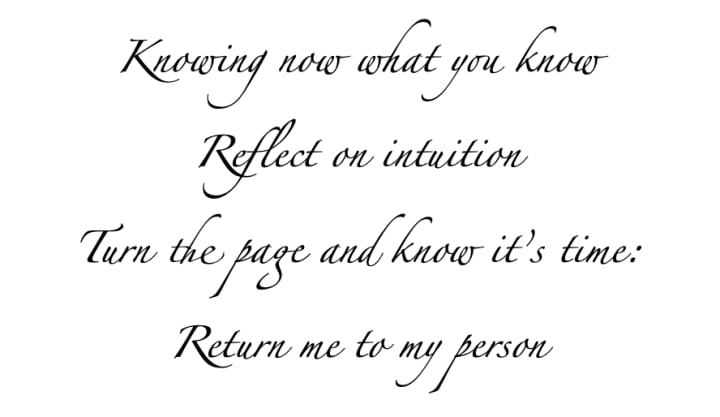 Knowing now what you know
Reflect on intuition
Turn the page and know it's time:
Return me to my person